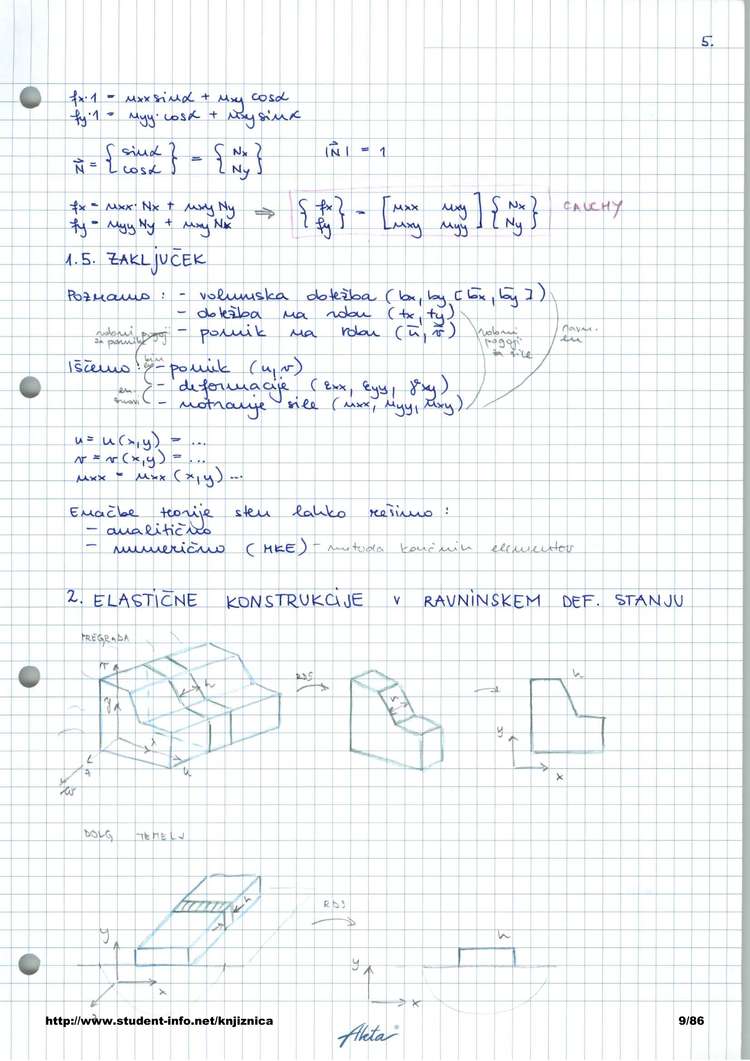 5.
fx·1 = nxx sinα + nxy cosα
fy·1 = nyy·cosα + nxy sinα
N⃗ = { sinα cosα } = { Nx Ny } |N⃗| = 1
fx = nxx·Nx + nxy Ny ⇒ { fx fy } = [ nxx nxy nxy nyy ] { Nx Ny } CAUCHY
fy = nyy Ny + nxy Nx
1.5. ZAKLJUČEK
Poznamo : - volumska obtežba (bx, by [b̄x, b̄y])
- obtežba na robu (tx, ty)
- pomik na robu (ū, v̄)
robni pogoji za pomike
robni pogoji za sile
Iščemo : - pomik (u, v)
- deformacije (εxx, εyy, γxy)
- notranje sile (nxx, nyy, nxy)
u = u(x,y) = ...
v = v(x,y) = ...
nxx = nxx (x,y) ...
Enačbe teorije sten lahko rešimo :
- analitično
- numerično (MKE) - metoda končnih elementov
2. ELASTIČNE KONSTRUKCIJE V RAVNINSKEM DEF. STANJU
PREGRADA
h
RDS
h
y
x
DOLG TEMELJ
h
RDS
h
y
x
y
x
http://www.student-info.net/knjiznica
9/86
Akta